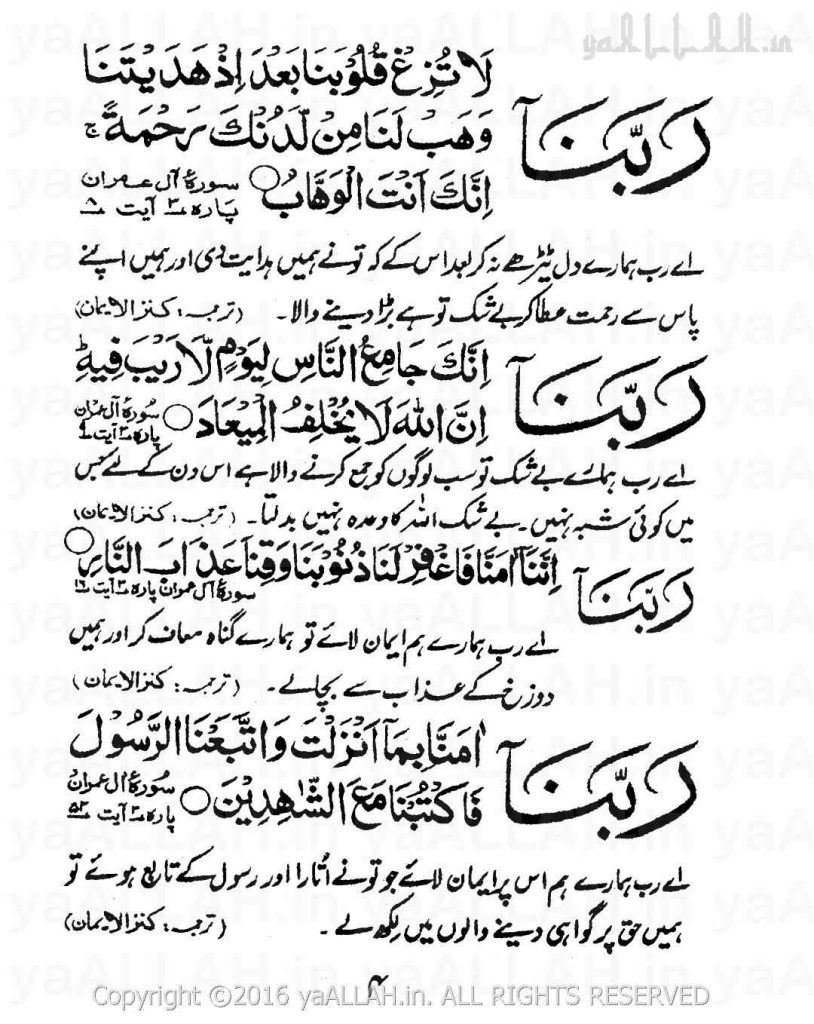 yaALLAH.in
رَبَّنَآ
لَا تُزِغْ قُلُوْبَنَا بَعْدَ اِذْ هَدَيْتَنَا
وَهَبْ لَنَا مِنْ لَّدُنْكَ رَحْمَةً ۚ
اِنَّكَ اَنْتَ الْوَهَّابُ ○ سورۂ آل عمران
پارہ ۳ آیت ۸
اے رب ہمارے دل ٹیڑھے نہ کر بعد اس کے کہ تونے ہمیں ہدایت دی اور ہمیں اپنے
پاس سے رحمت عطا کر بے شک تو ہے بڑا دینے والا۔ (ترجمہ: کنزالایمان)
رَبَّنَآ
اِنَّكَ جَامِعُ النَّاسِ لِيَوْمٍ لَّا رَيْبَ فِيْهِ ؕ
اِنَّ اللّٰهَ لَا يُخْلِفُ الْمِيْعَادَ ○ سورۂ آل عمران
پارہ ۳ آیت ۹
اے رب ہمارے بے شک تو سب لوگوں کو جمع کرنے والا ہے اس دن کے لئے جس
میں کوئی شبہ نہیں۔ بے شک اللہ کا وعدہ نہیں بدلتا۔ (ترجمہ: کنزالایمان)
رَبَّنَآ
اِنَّنَآ اٰمَنَّا فَاغْفِرْ لَنَا ذُنُوْبَنَا وَقِنَا عَذَابَ النَّارِ ○
سورۂ آل عمران پارہ ۳ آیت ۱۶
اے رب ہمارے ہم ایمان لائے تو ہمارے گناہ معاف کر اور ہمیں
دوزخ کے عذاب سے بچالے۔ (ترجمہ: کنزالایمان)
رَبَّنَآ
اٰمَنَّا بِمَآ اَنْزَلْتَ وَاتَّبَعْنَا الرَّسُوْلَ
فَاكْتُبْنَا مَعَ الشّٰهِدِيْنَ ○ سورۂ آل عمران
پارہ ۳ آیت ۵۳
اے رب ہمارے ہم اس پر ایمان لائے جو تونے اُتارا اور رسول کے تابع ہوئے تو
ہمیں حق پر گواہی دینے والوں میں لکھ لے۔ (ترجمہ: کنزالایمان)
۴
Copyright ©2016 yaALLAH.in. ALL RIGHTS RESERVED